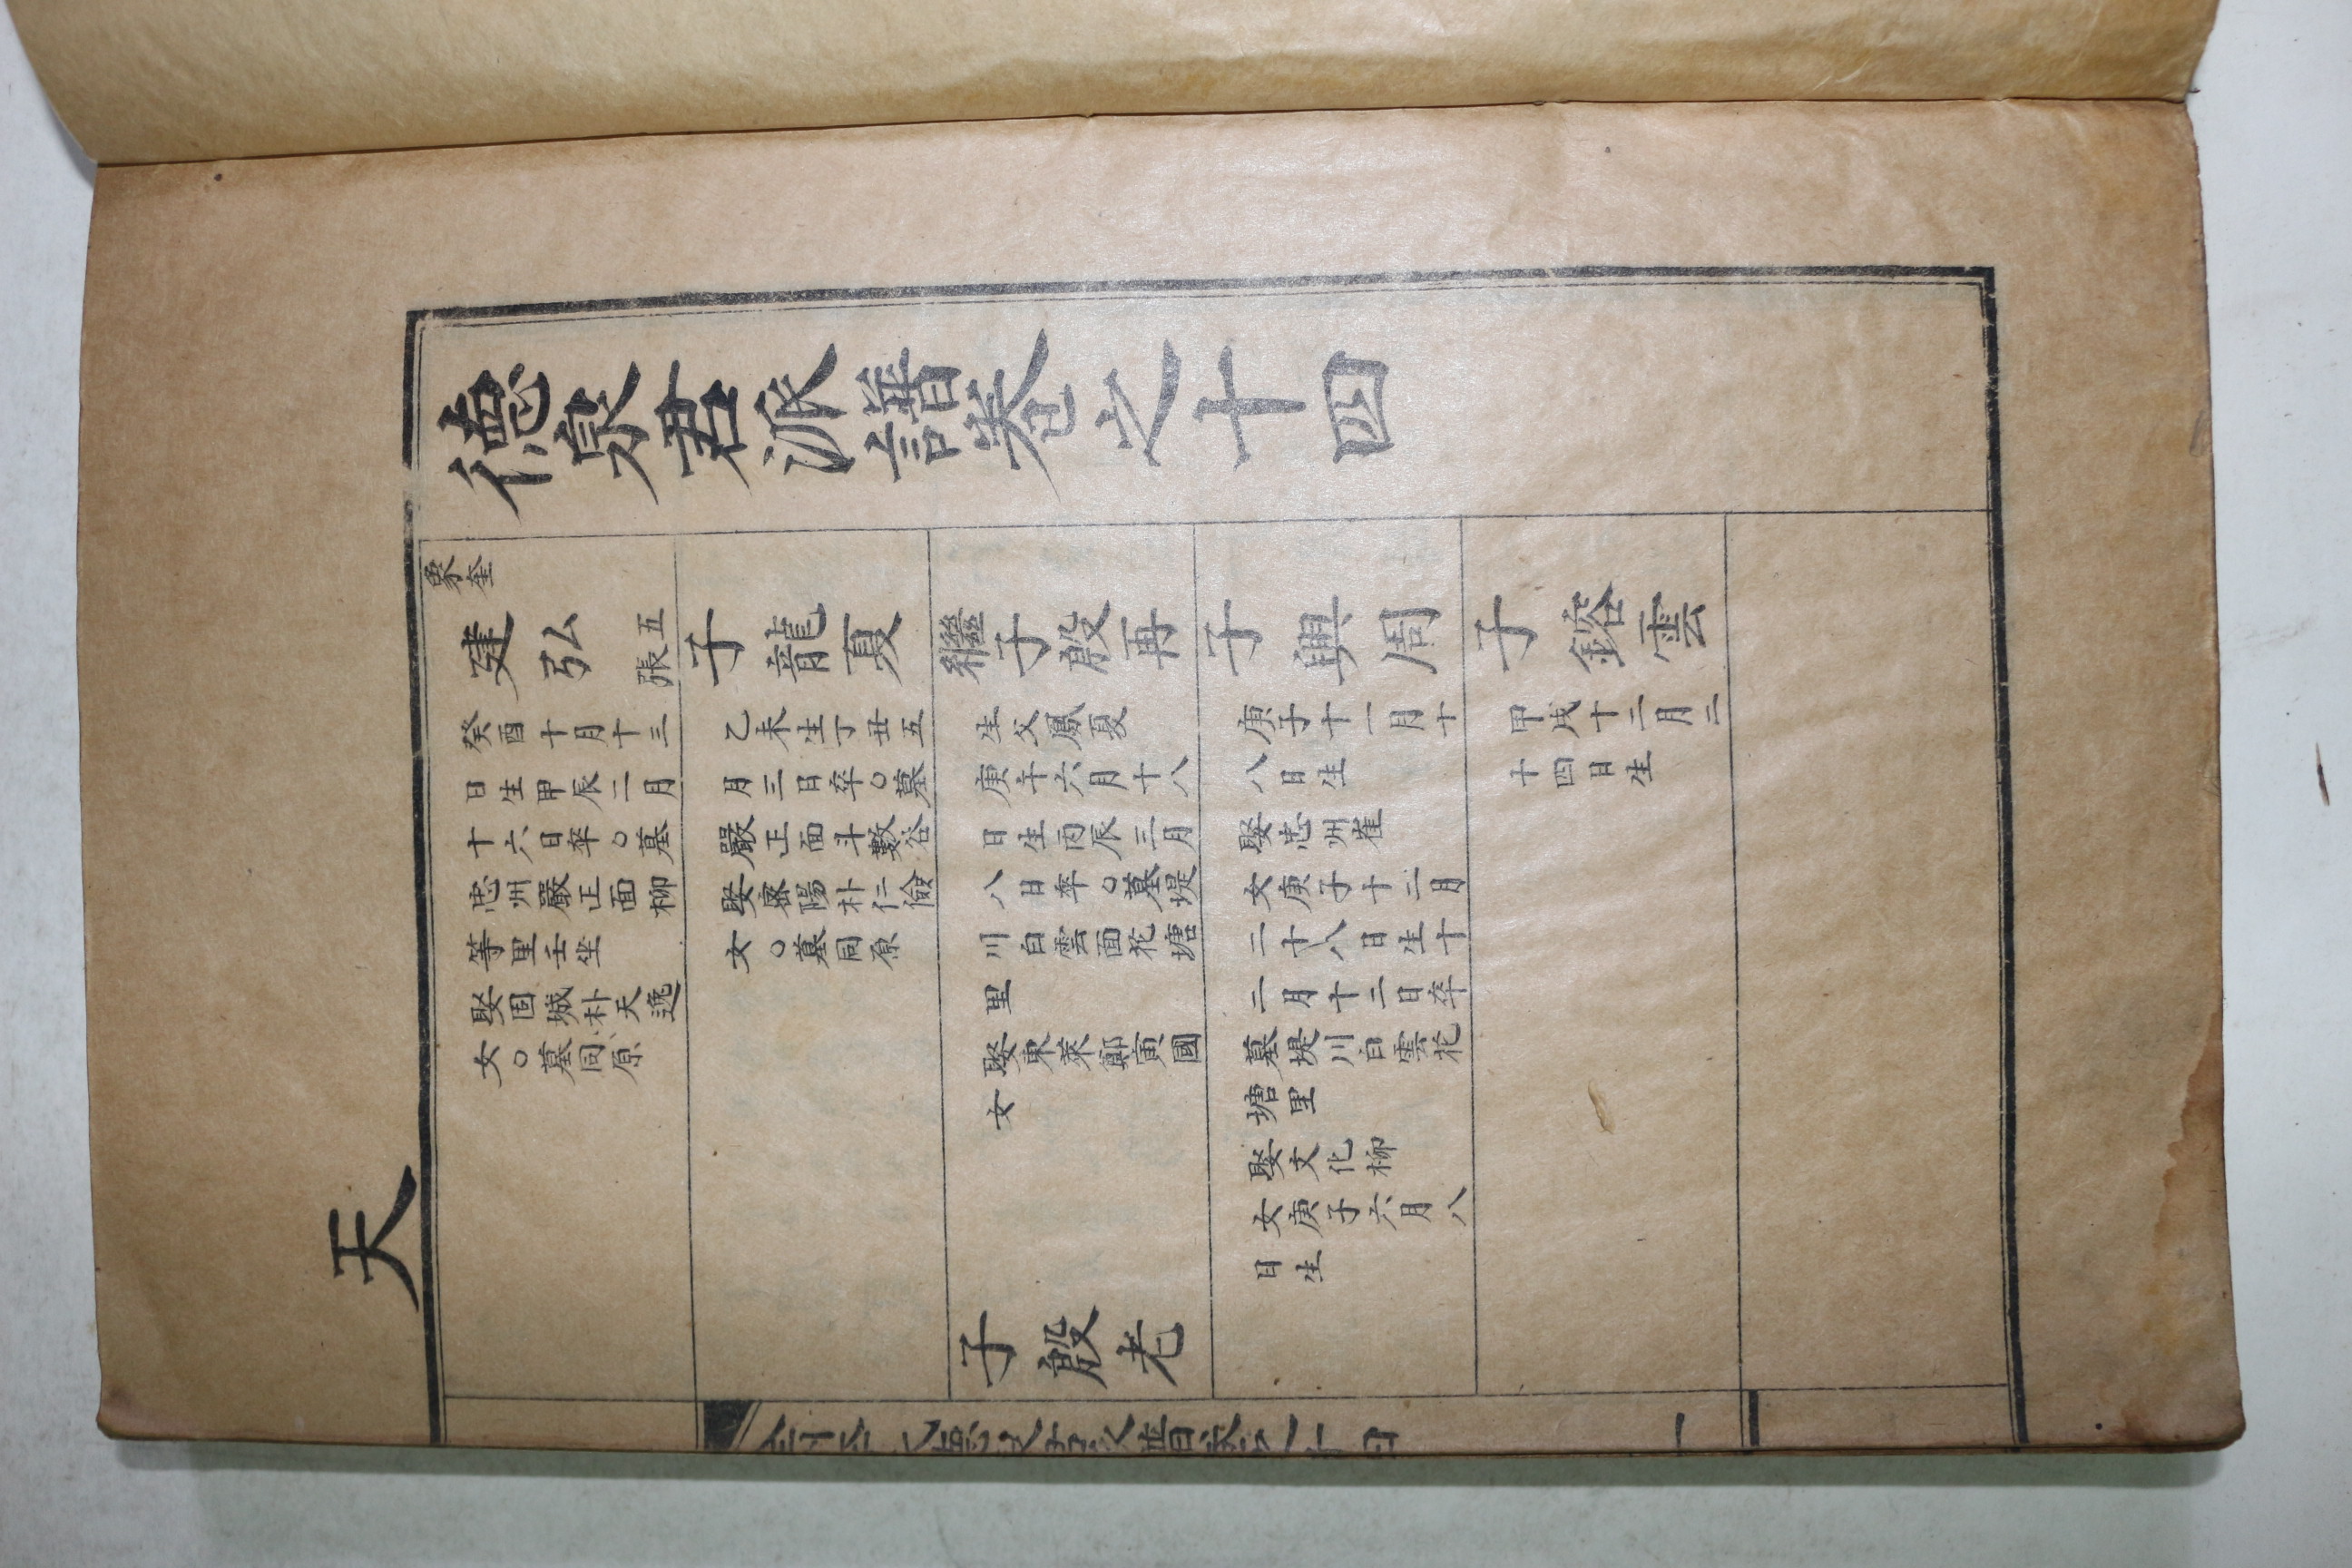 德泉君派譜卷之十四
天
象奎
建弘
五
張
癸酉十月十三
日生甲辰二月
十六日卒○墓
忠州嚴正面柳
等里壬坐
娶固城朴天逸
女○墓同原
子龍夏
乙未生丁丑五
月三日卒○墓
嚴正面斗數谷
娶密陽朴仁儉
女○墓同原
繼子殷再
生父鳳夏
庚午六月十八
日生丙辰三月
八日卒○墓堤
川白雲面花塘
里
娶東萊鄭寅國
女
子殷老
子興周
庚子十一月十
八日生
娶忠州崔
女庚子十二月
二十八日生十
二月十二日卒
墓堤川白雲花
塘里
娶文化柳
女庚子六月八
日生
子鎔雲
甲戌十二月二
十四日生
一